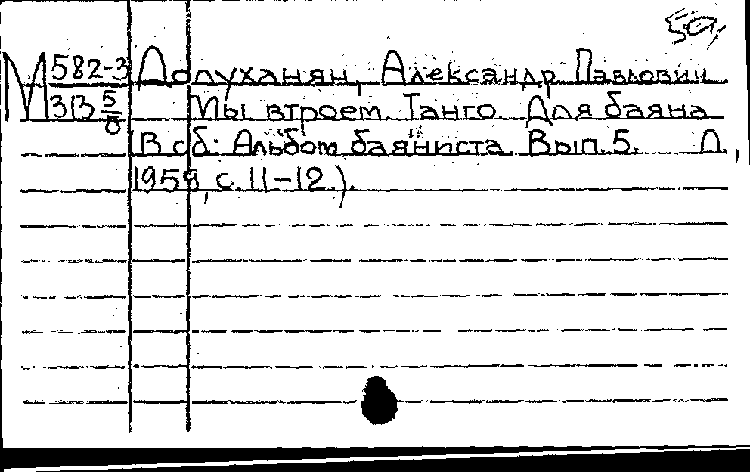 50,
М 582-3 Долуханян, Александр Павлович
313 5/8 Мы втроем. Танго. Для баяна
(В сб: Альбом баяниста. Вып. 5. Л.,
1959, с. 11-12.).